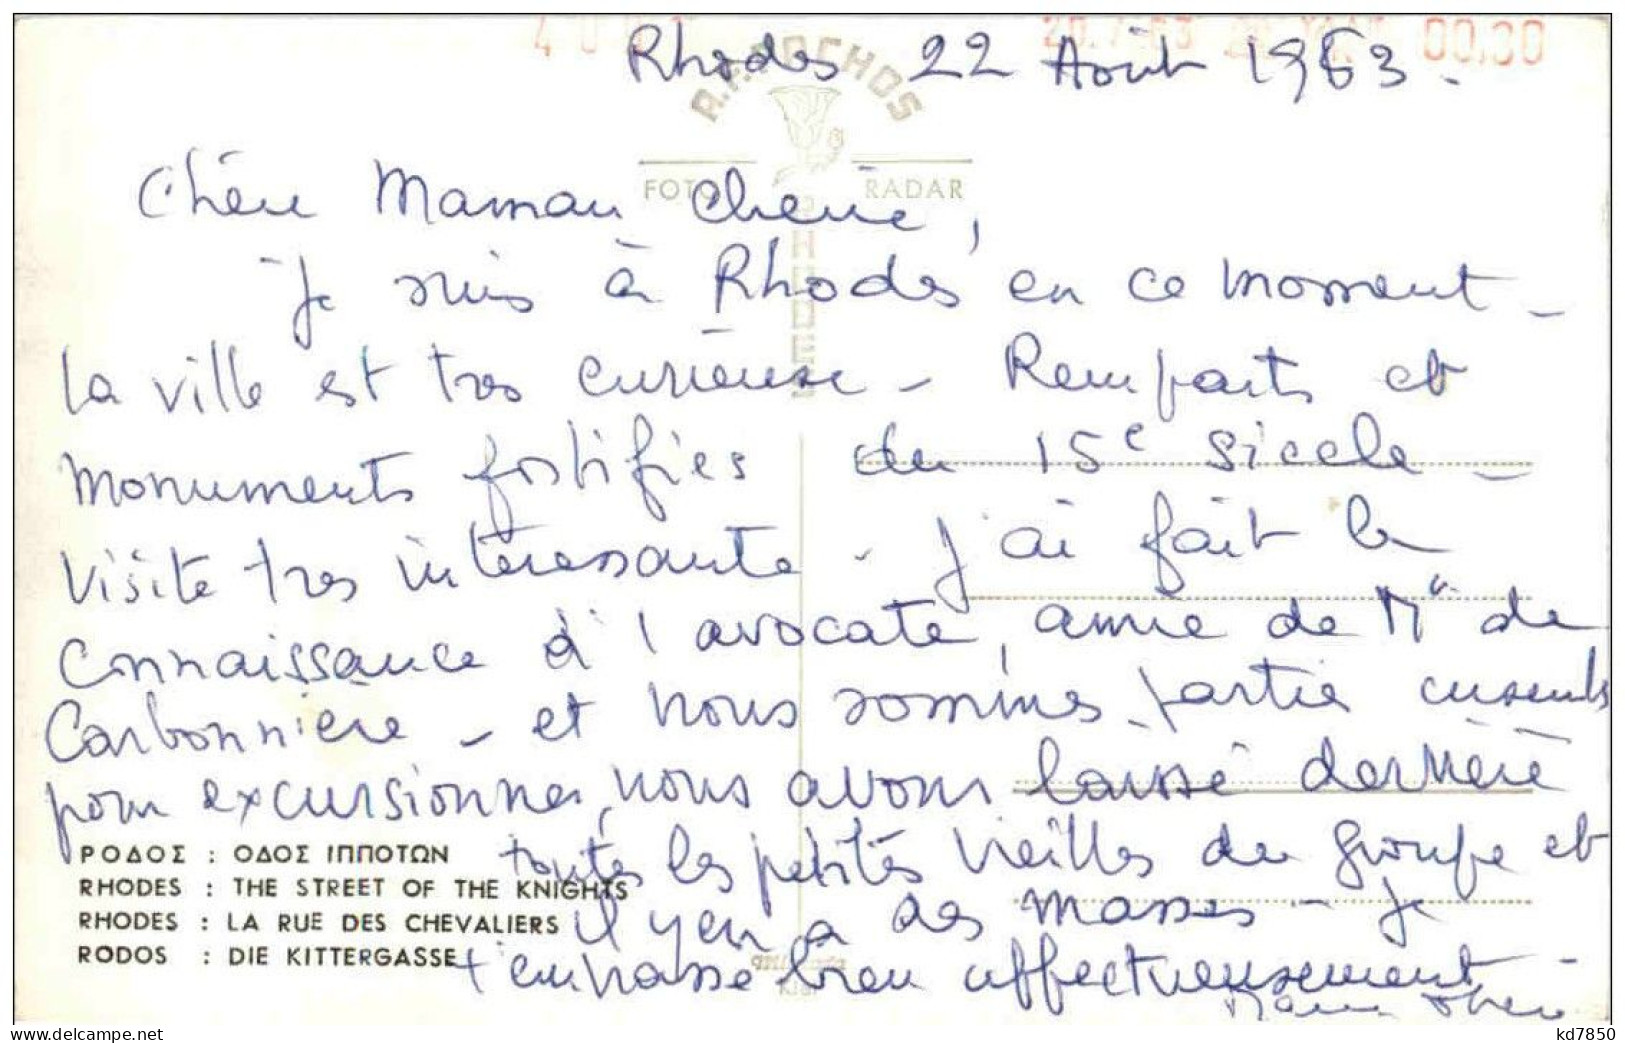 Rhodes 22 Août 1963.
00.30
A.F. POCHOS
FOTO RADAR
RHODES
Chère Maman Cherie,
Je suis à Rhodes en ce moment -
la ville est tres curieuse - Remparts et
monuments fortifies du 15e siecle -
visite tres intéressante - J'ai fait la
connaissance d' l'avocate, amie de Mr de
Carbonnière - et nous sommes partie
pour excursionner, nous avons laissé derriere
toutes les petites vieilles du groupe et
il y en a des masses - Je
t'embrasse bien affectueusement -
ΡΟΔΟΣ : ΟΔΟΣ ΙΠΠΟΤΩΝ
RHODES : THE STREET OF THE KNIGHTS
RHODES : LA RUE DES CHEVALIERS
RODOS : DIE KITTERGASSE
kd7850